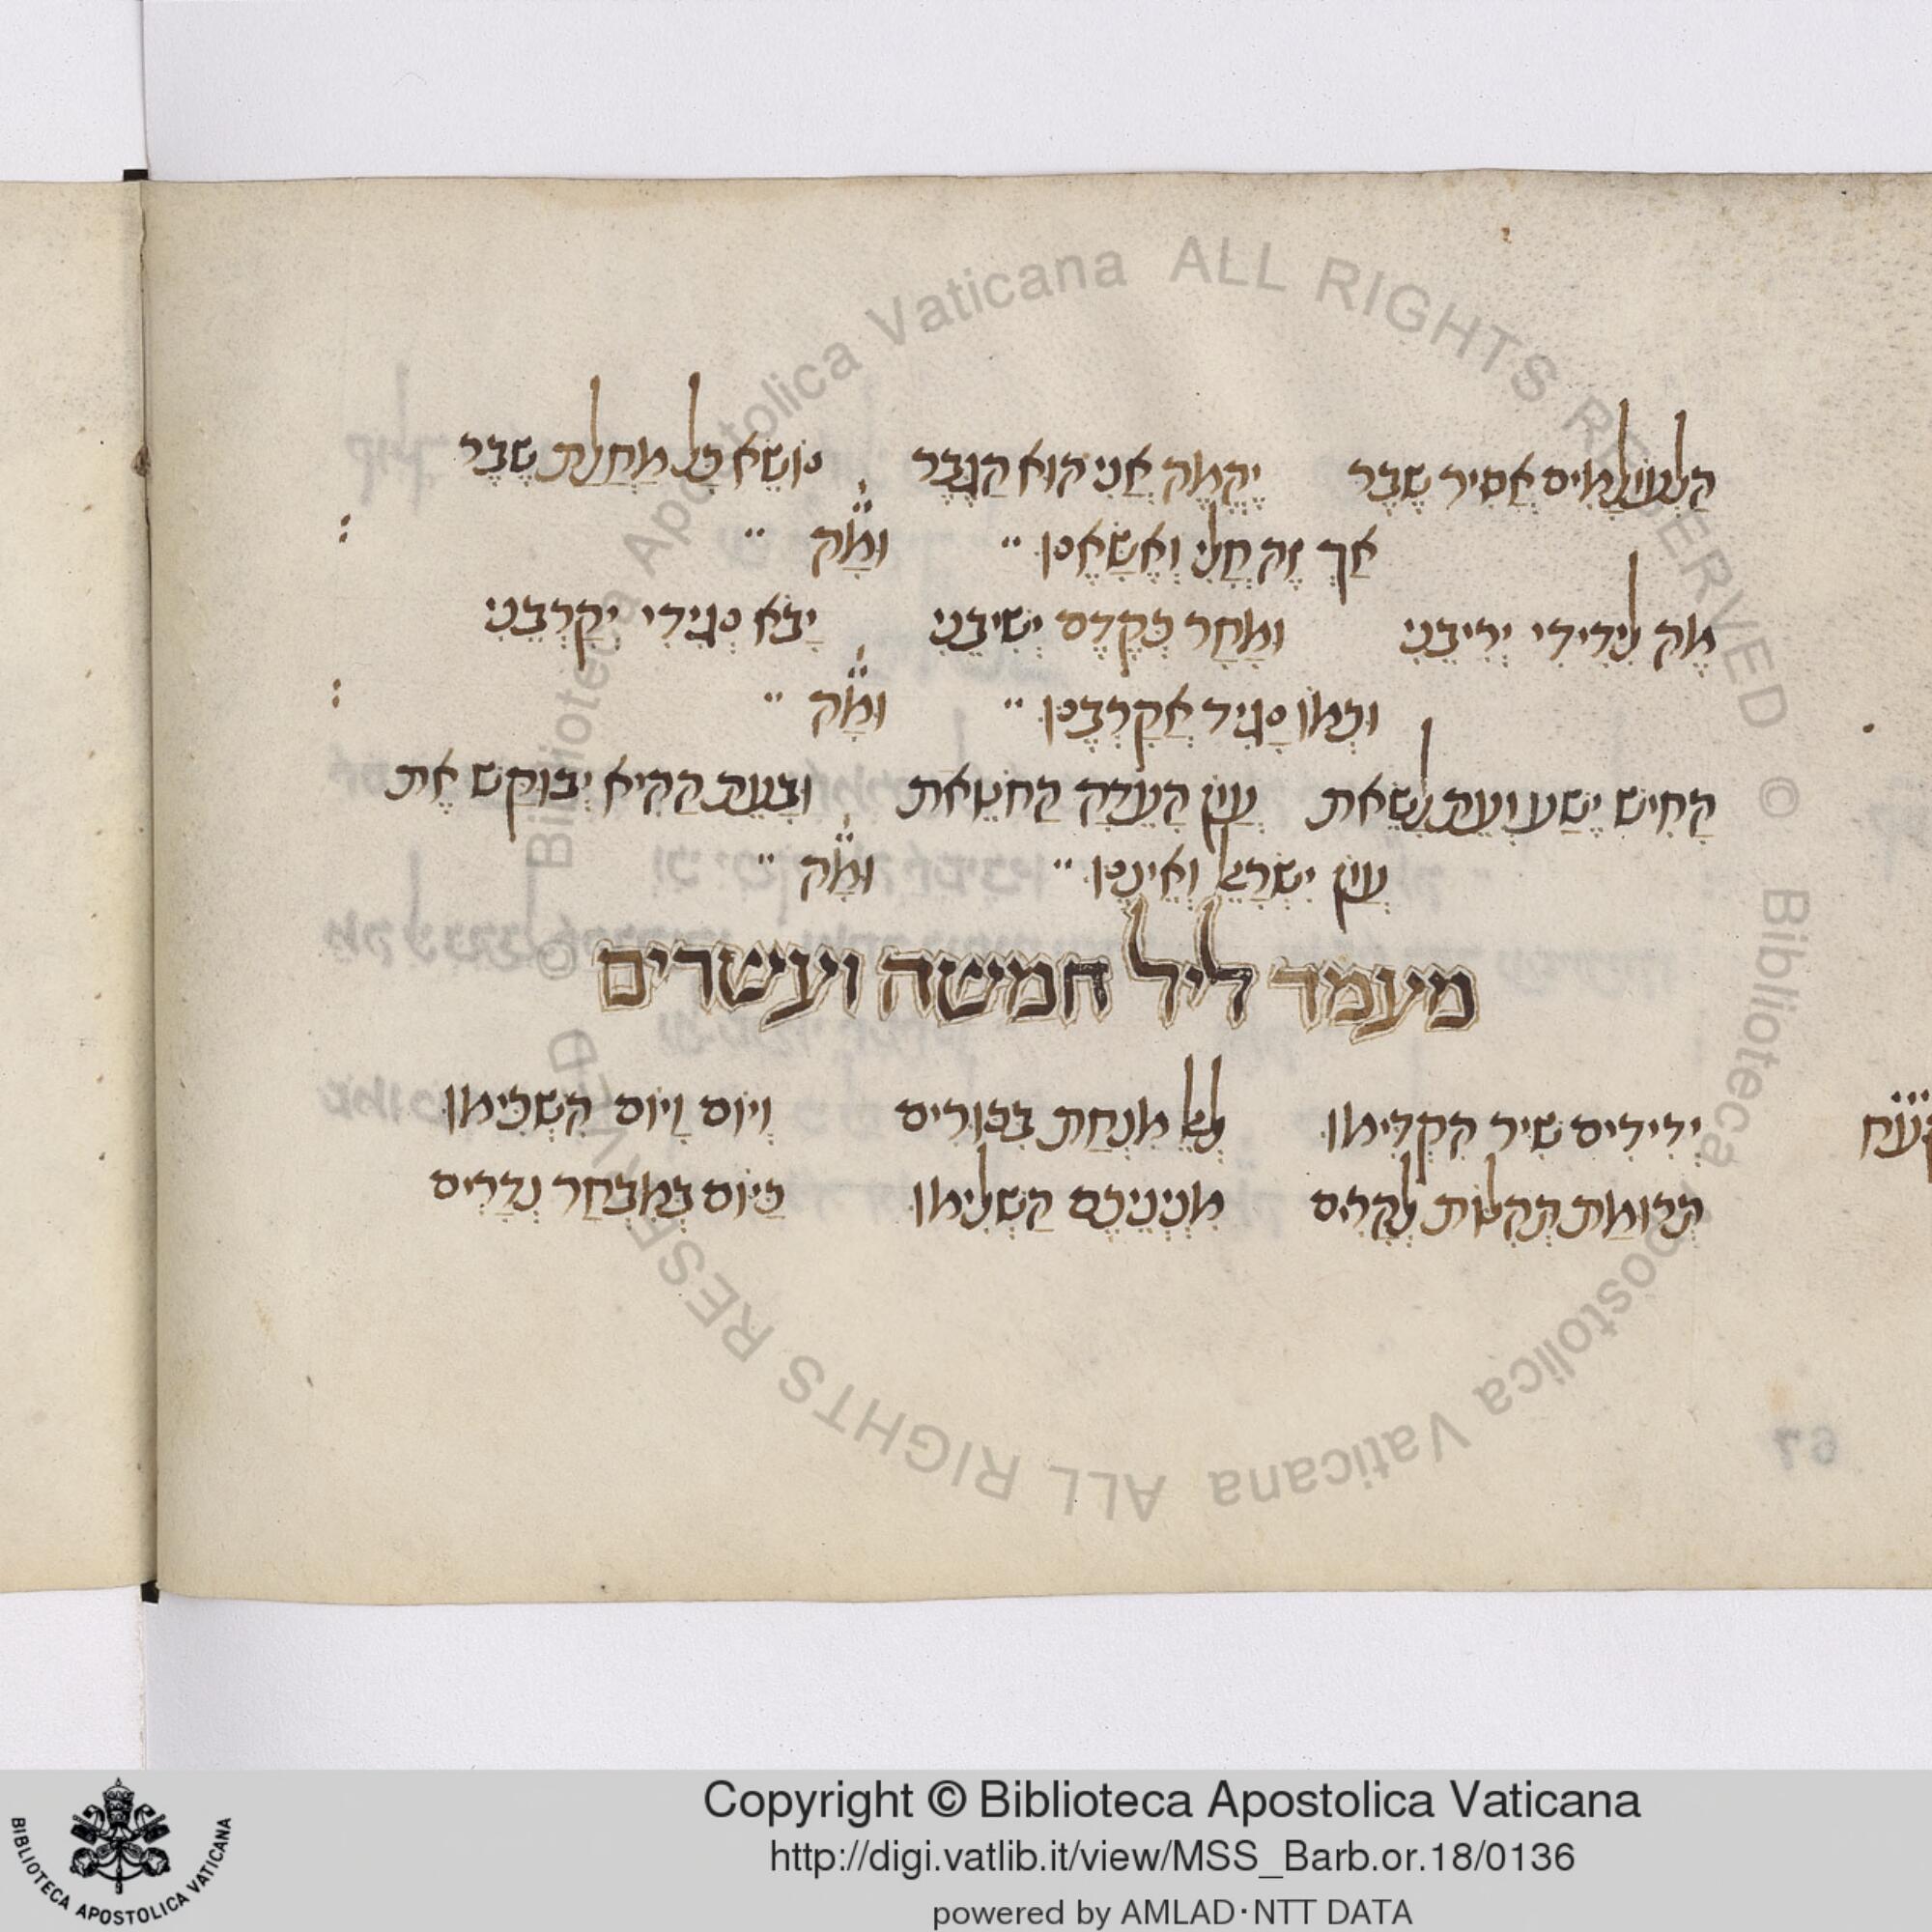 הַלְעוֹלָמִים אֲסִיר שֶׁבֶר יֶהֱמֶה אֲנִי הוּא הַגֶּבֶר נוֹשֵׂא כָּל מַחֲלַת שֶׁבֶר
אַךְ זֶה חֳלִי וְאֶשָּׂאֶנּוּ ״ וּמָה ״ :
מֶה לִידִידִי יְרִיבֵנִי וּמָחָר כְּקֶדֶם יְשִׁיבֵנִי יָבֹא נְגִידִי יְקָרְבֵנִי
וּכְמוֹ נָגִיד אֲקָרְבֶנּוּ ״ וּמָה ״ :
הָחִישׁ יֶשַׁע וְעֵת לָשֵׂאת עֲוֹן הָעֵדָה הַחֹטֵאת וּבָעֵת הַהִיא יְבוּקַּשׁ אֶת
עֲוֹן יִשְׂרָאֵל וְאֵינֶנּוּ ״ וּמָה ״
מעמד ליל חמשה ועשרים
יְדִידִים שִׁיר הִקְדִּימוּ לְאֵל מִנְחַת בִּכּוּרִים וְיוֹם וָיוֹם הִשְׁכִּימוּ
תְּרוּמַת תְּהִלּוֹת לְהָרִים מִנְיְנֵיכֶם הַשְׁלִימוּ כַּיּוֹם בְּמִבְחַר נְדָרִים
Copyright © Biblioteca Apostolica Vaticana
http://digi.vatlib.it/view/MSS_Barb.or.18/0136
powered by AMLAD·NTT DATA
BIBLIOTECA APOSTOLICA VATICANA
Biblioteca Apostolica Vaticana ALL RIGHTS RESERVED © Biblioteca Apostolica Vaticana ALL RIGHTS RESERVED ©